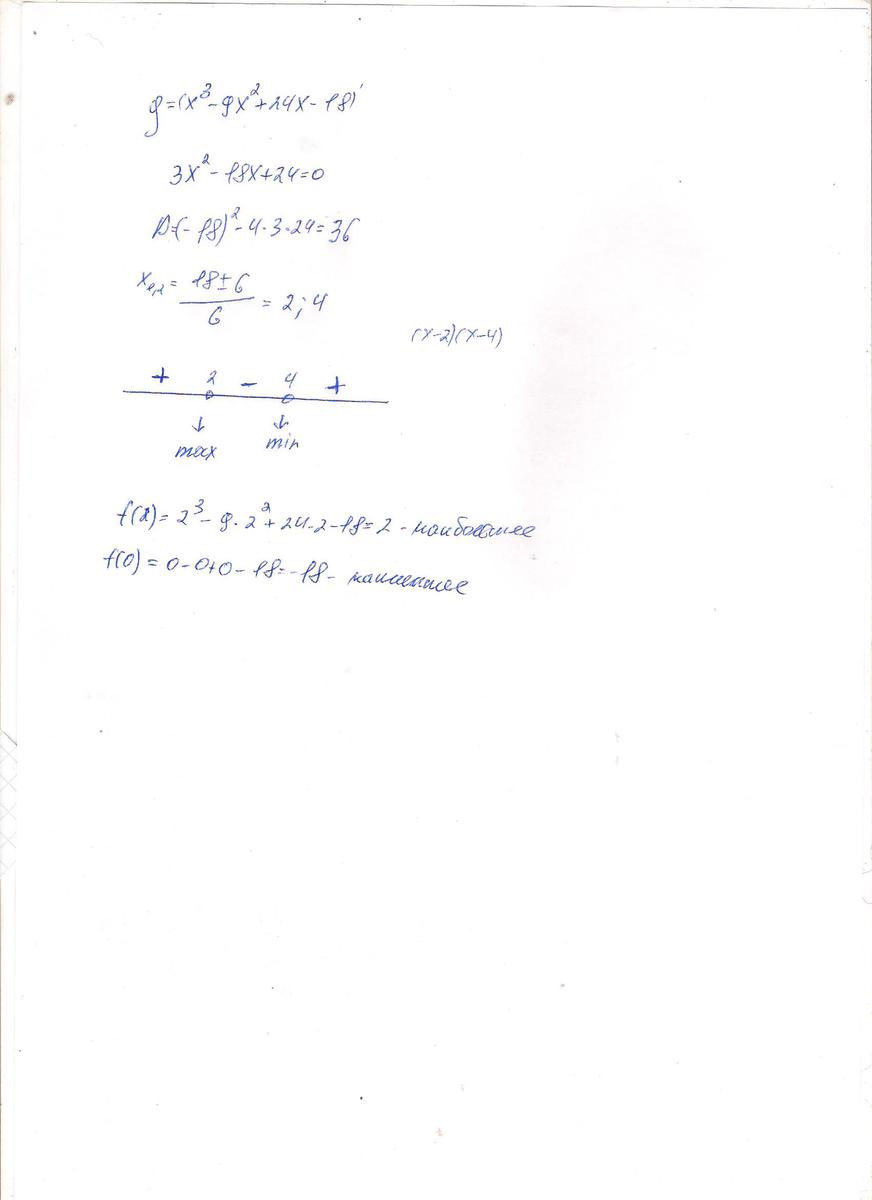 y=(x³-9x²+24x-18)'
3x²-18x+24=0
D=(-18)²-4·3·24=36
x₁,₂= 18±6 / 6 = 2; 4
(x-2)(x-4)
+ 2 - 4 +
↓ ↓
max min
f(2)=2³-9·2²+24·2-18=2-наибольшее
f(0)=0-0+0-18=-18- наименьшее